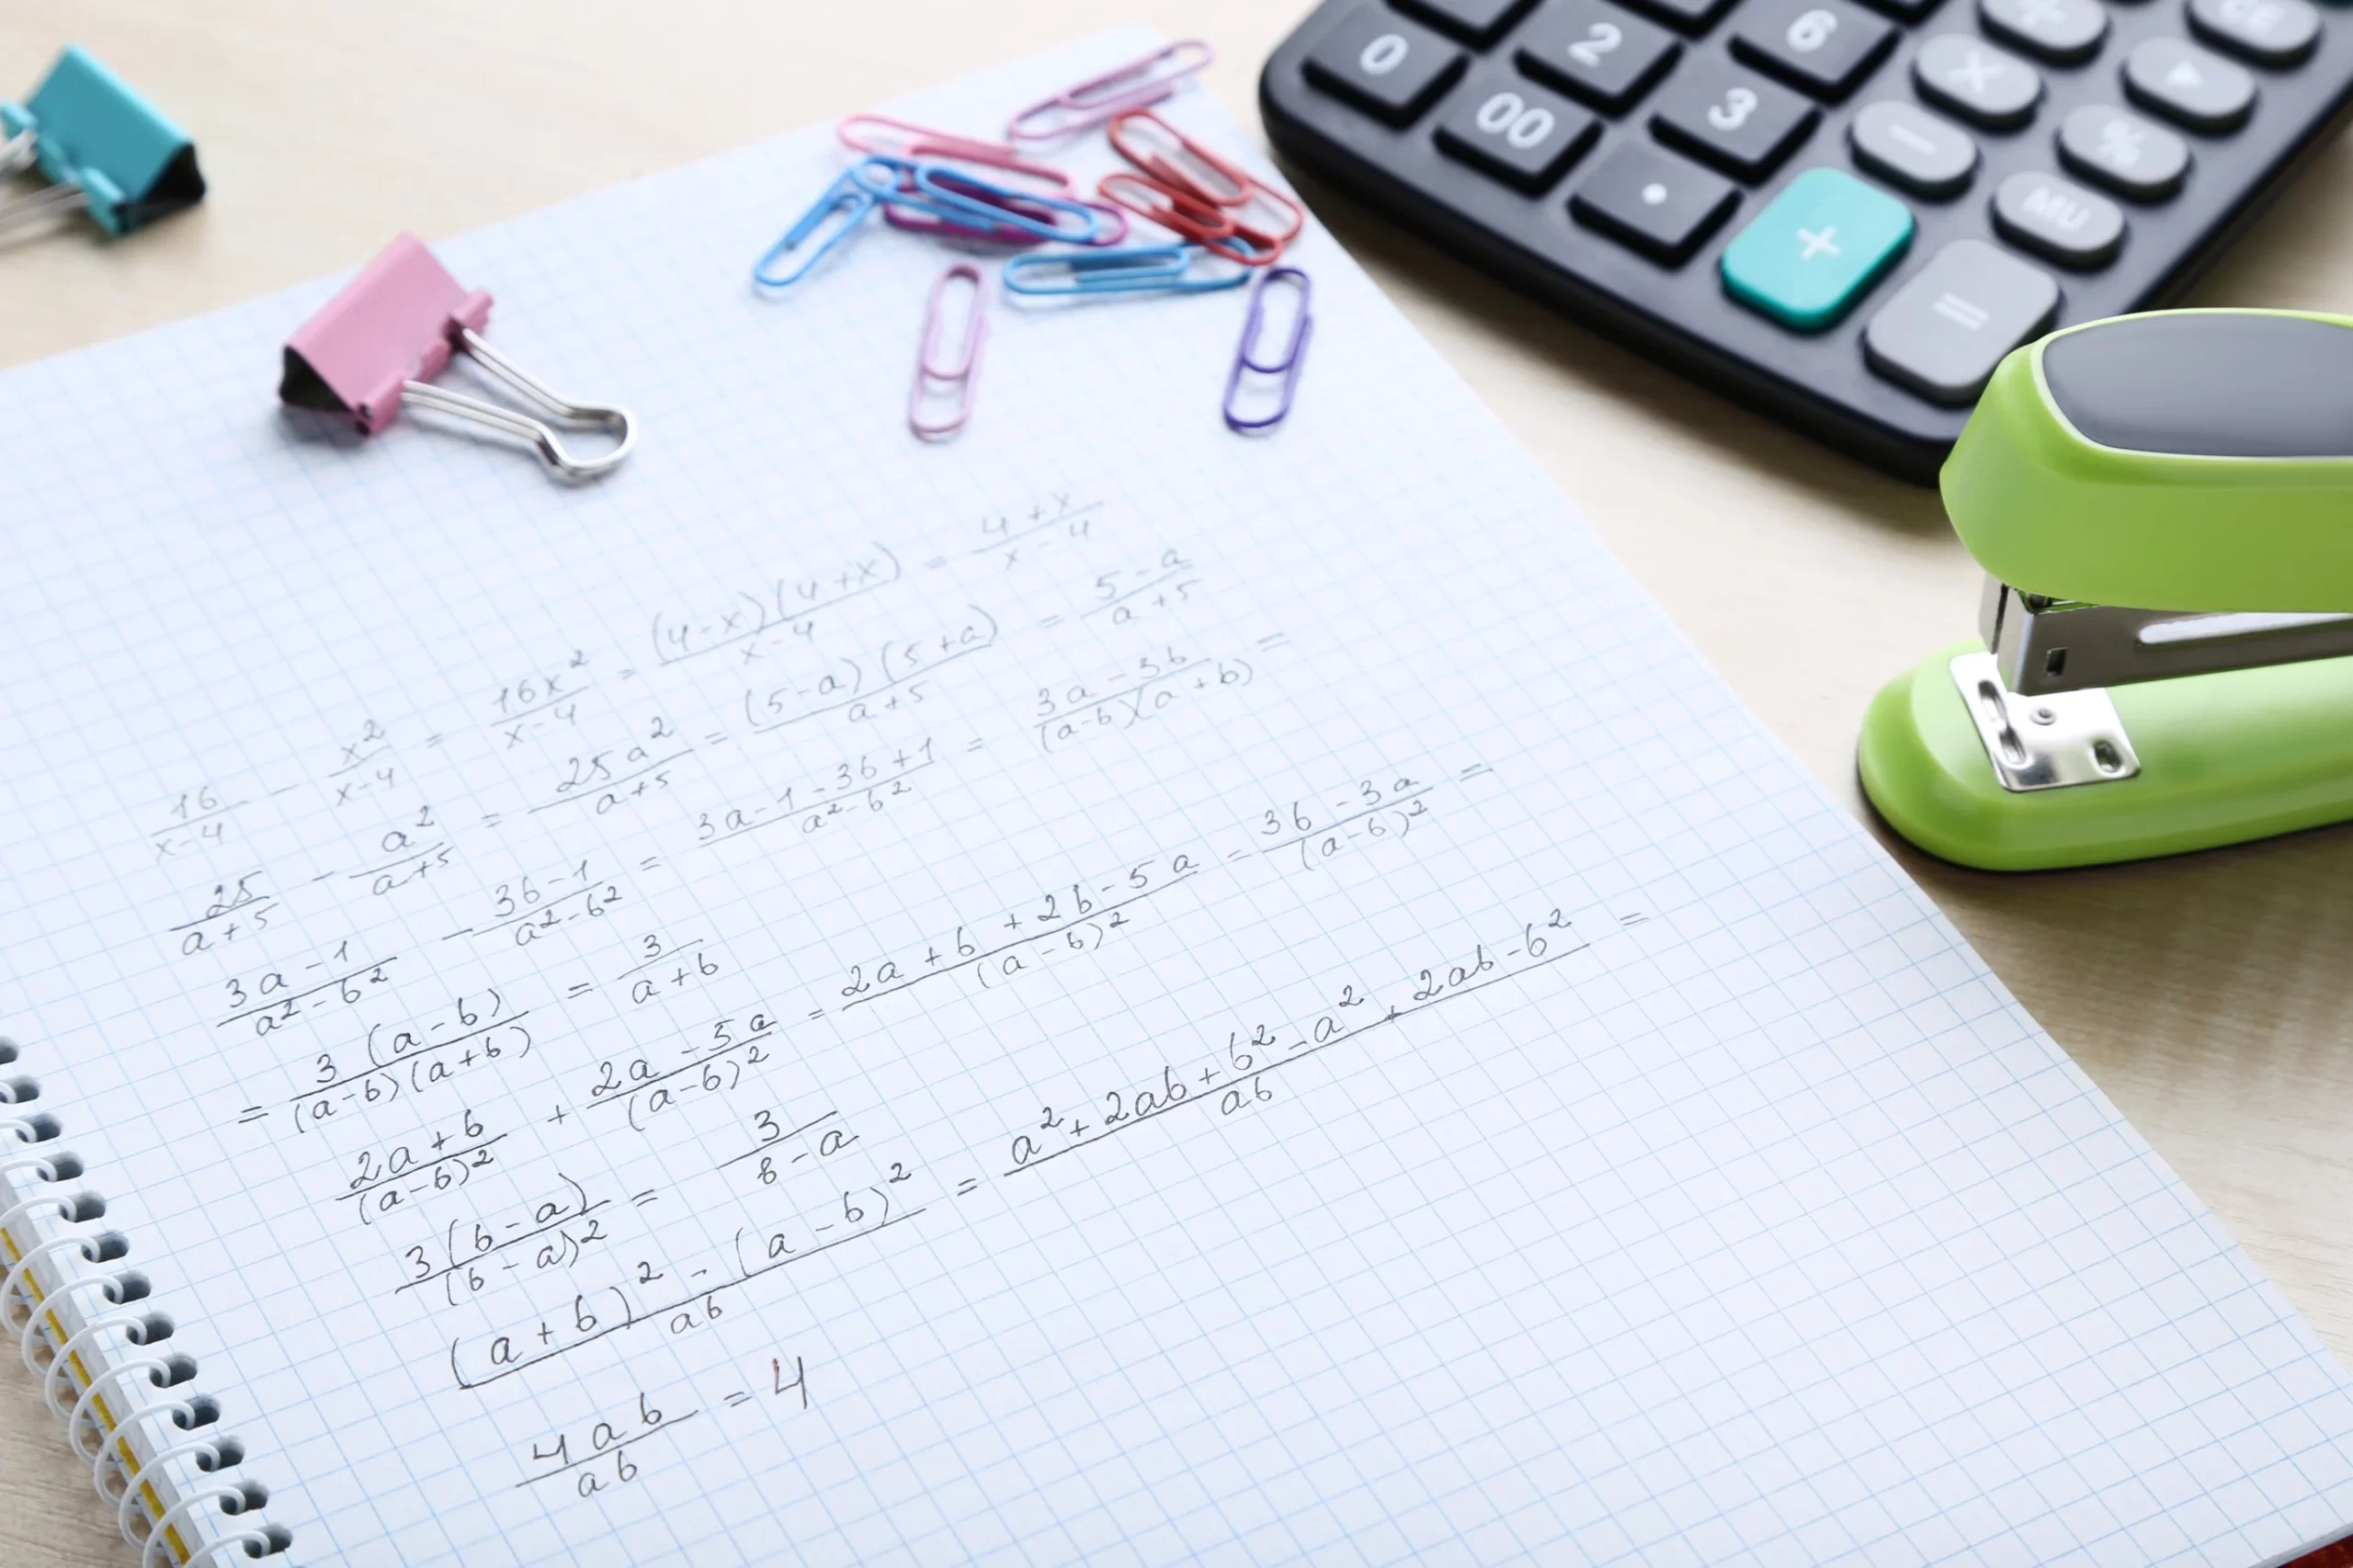 0 2 6 ÷ CE
00 3 × ▶
. − %
+ MU
=
16/(x-4) - x²/(x-4) = 16x²/(x-4) = (4-x)(4+x)/(x-4) = (4+x)/(x-4)
25/(a+5) - a²/(a+5) = 25a²/(a+5) = (5-a)(5+a)/(a+5) = (5-a)/(a+5)
(3a-1)/(a²-b²) - (3b-1)/(a²-b²) = (3a-1-3b+1)/(a²-b²) = (3a-3b)/((a-b)(a+b)) =
= 3(a-b)/((a-b)(a+b)) = 3/(a+b)
(2a+b)/(a-b)² + (2a-5a)/(a-b)² = (2a+b+2b-5a)/(a-b)² = (3b-3a)/(a-b)² =
3(b-a)/(b-a)² = 3/(b-a)
((a+b)²-(a-b)²)/ab = (a²+2ab+b²-a²+2ab-b²)/ab =
4ab/ab = 4